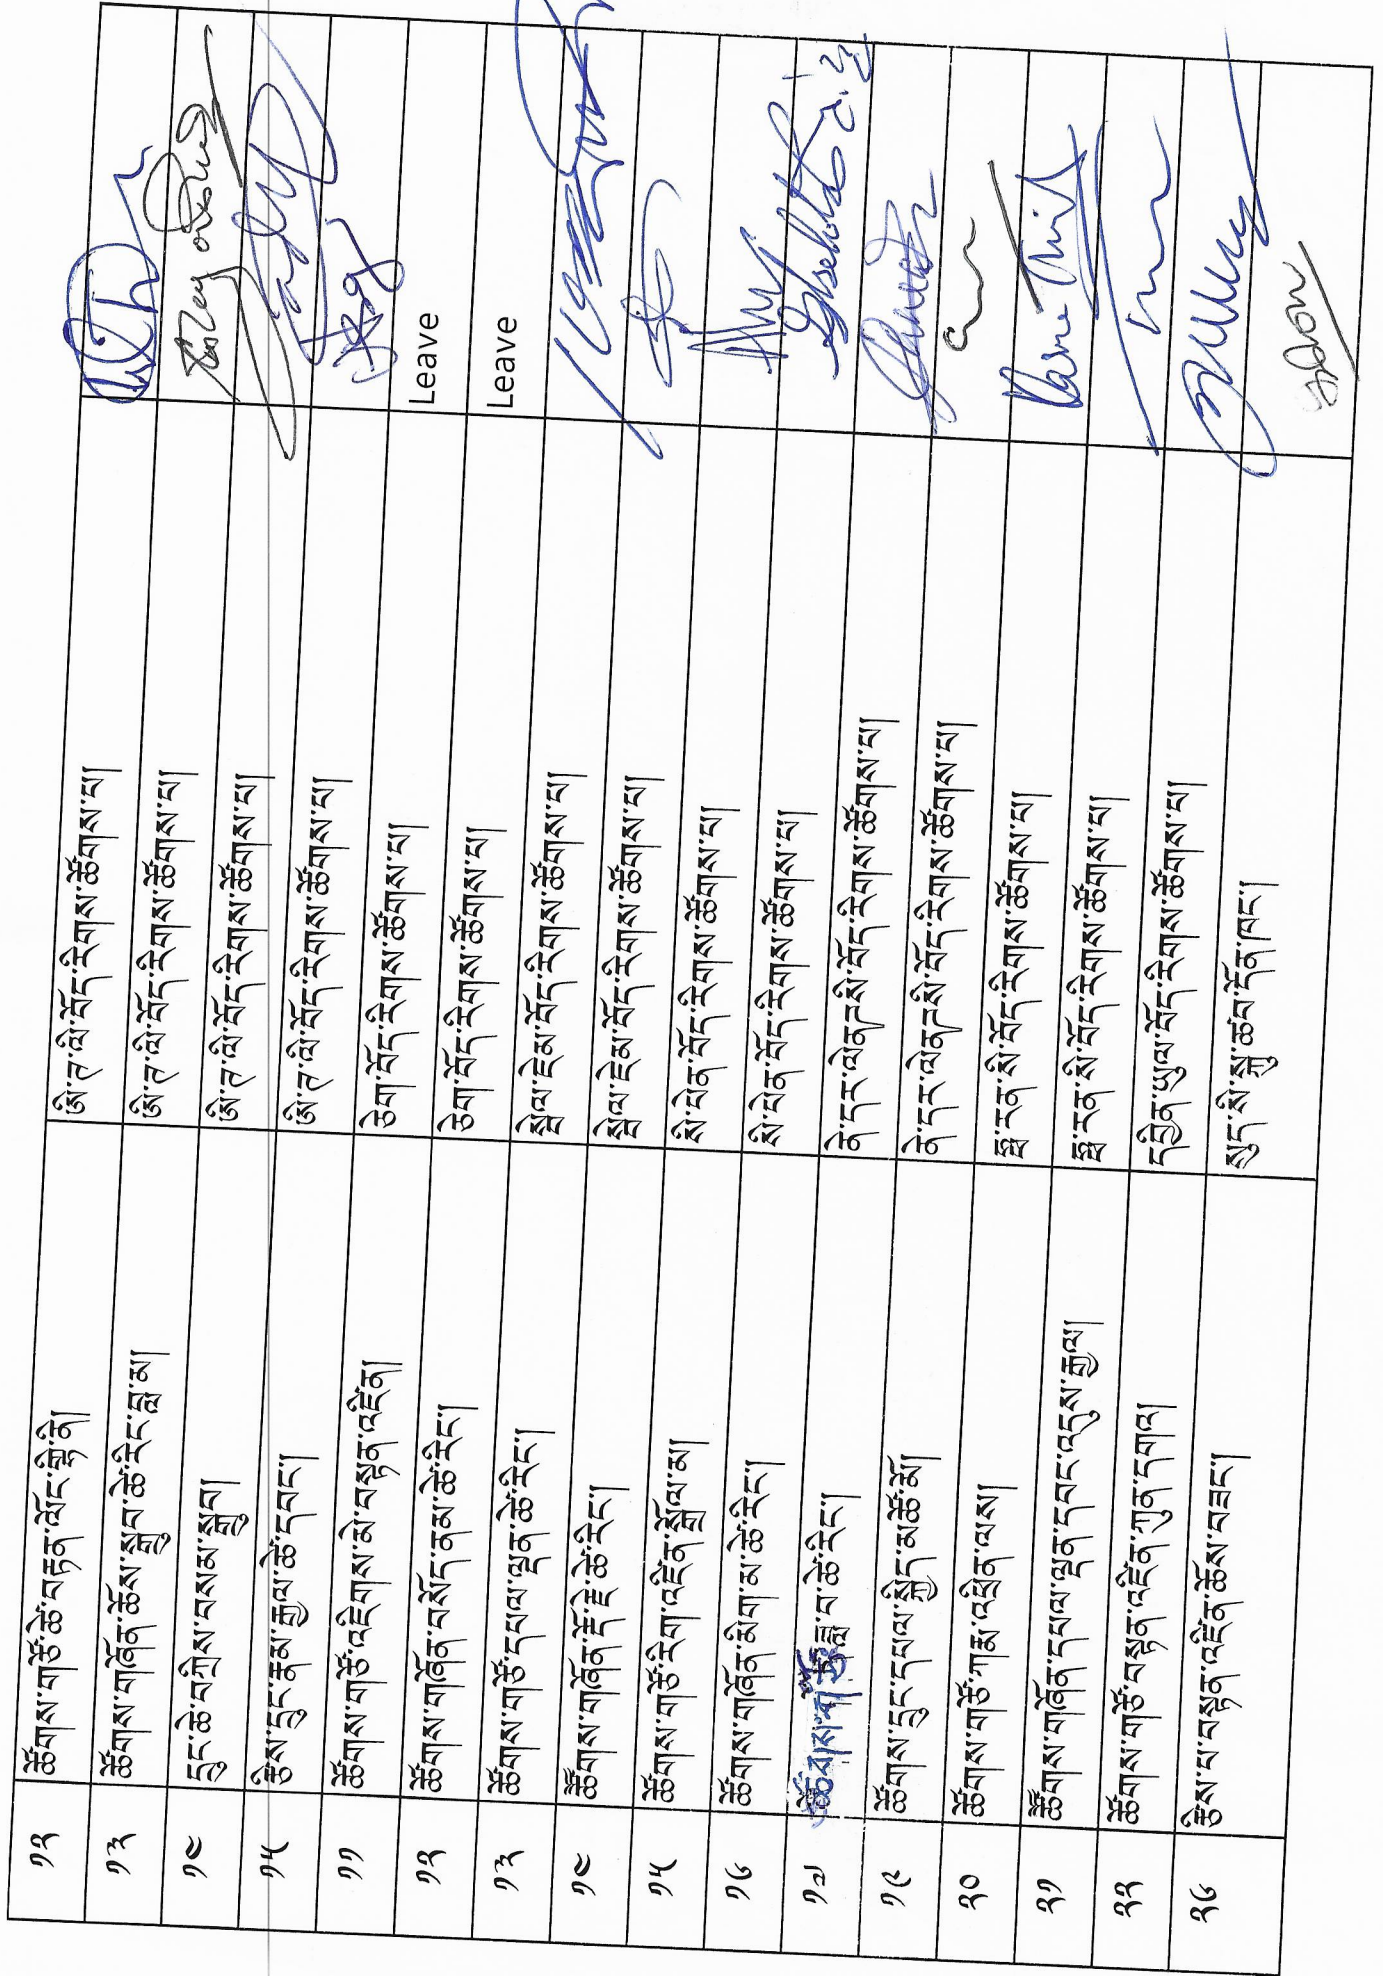 ༡༢ ཚོགས་གཙོ་ཚེ་བརྟན་ལོང་སྐྱི་ནི། ཨི་ཊ་ལི་བོད་རིགས་ཚོགས་པ།
༡༣ ཚོགས་གཞོན་ཚོས་གྲུབ་ཚེ་རིང་བླ་མ། ཨི་ཊ་ལི་བོད་རིགས་ཚོགས་པ།
༡༤ དྲུང་ཆེ་བཀྲིས་བསམ་གྲུབ། ཨི་ཊ་ལི་བོད་རིགས་ཚོགས་པ།
༡༥ རྩིས་དྲུང་རྣམ་རྒྱལ་ཚེ་དབང་། ཨི་ཊ་ལི་བོད་རིགས་ཚོགས་པ།
༡༡ ཚོགས་གཙོ་འཇིགས་མེ་བསྟན་འཛིན། ཅེག་བོད་རིགས་ཚོགས་པ། Leave
༡༢ ཚོགས་གཞོན་བསོད་ནམ་ཚེ་རིང་། ཅེག་བོད་རིགས་ཚོགས་པ། Leave
༡༣ ཚོགས་གཙོ་དཔལ་ལྡན་ཚེ་རིང་། སྦེལ་ཇེམ་བོད་རིགས་ཚོགས་པ།
༡༤ ཚོགས་གཞོན་རྡོ་རྗེ་ཚེ་རིང་། སྦེལ་ཇེམ་བོད་རིགས་ཚོགས་པ།
༡༥ ཚོགས་གཙོ་རིག་འཛིན་སྒྲོལ་མ། སི་པེན་བོད་རིགས་ཚོགས་པ།
༡༦ ཚོགས་གཞོན་མིག་མ་ཚེ་རིང་། སི་པེན་བོད་རིགས་ཚོགས་པ།
༡༧ ཚོགས་གཙོ་ཟླ་བ་ཚེ་རིང་། ནེ་དར་ལེནཌསི་བོད་རིགས་ཚོགས་པ།
༡༩ ཚོགས་དྲུང་དཔལ་སྐྱིད་མཚོ་མོ། ནེ་དར་ལེནཌསི་བོད་རིགས་ཚོགས་པ།
༢༠ ཚོགས་གཙོ་ཀརྨ་འཕྲིན་ལས། ཕྲ་རན་སི་བོད་རིགས་ཚོགས་པ།
༢༡ ཚོགས་གཞོན་དཔལ་ལྡན་དབང་འདུས་རྒྱལ། ཕྲ་རན་སི་བོད་རིགས་ཚོགས་པ།
༢༢ ཚོགས་གཙོ་བསྟན་འཛིན་ཀུན་དགའ། དབྱིན་ཡུལ་བོད་རིགས་ཚོགས་པ།
༢༦ རྩིས་པ་བསྟན་འཛིན་ཚོས་བཟང་། སུད་སི་སྐུ་ཚབ་དོན་ཁང་།